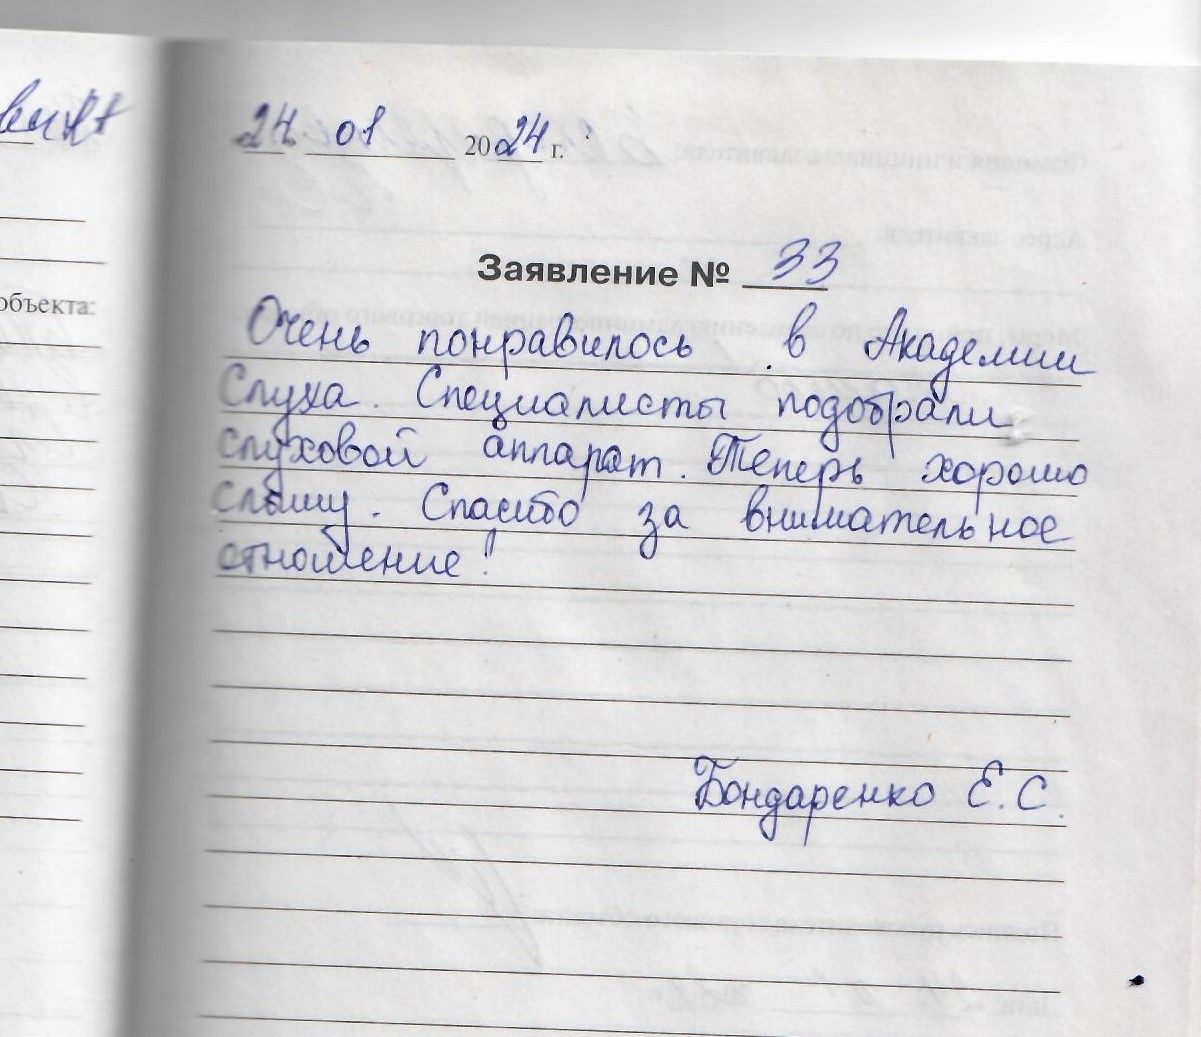 24 01 2024 г.
объекта:
Заявление № 33
Очень понравилось в Академии
Слуха. Специалисты подобрали
слуховой аппарат. Теперь хорошо
слышу. Спасибо за внимательное
отношение!
Бондаренко Е.С.